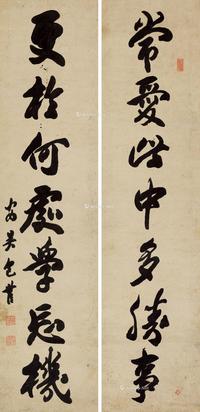 常愛此中多勝事
更於何處學忘機